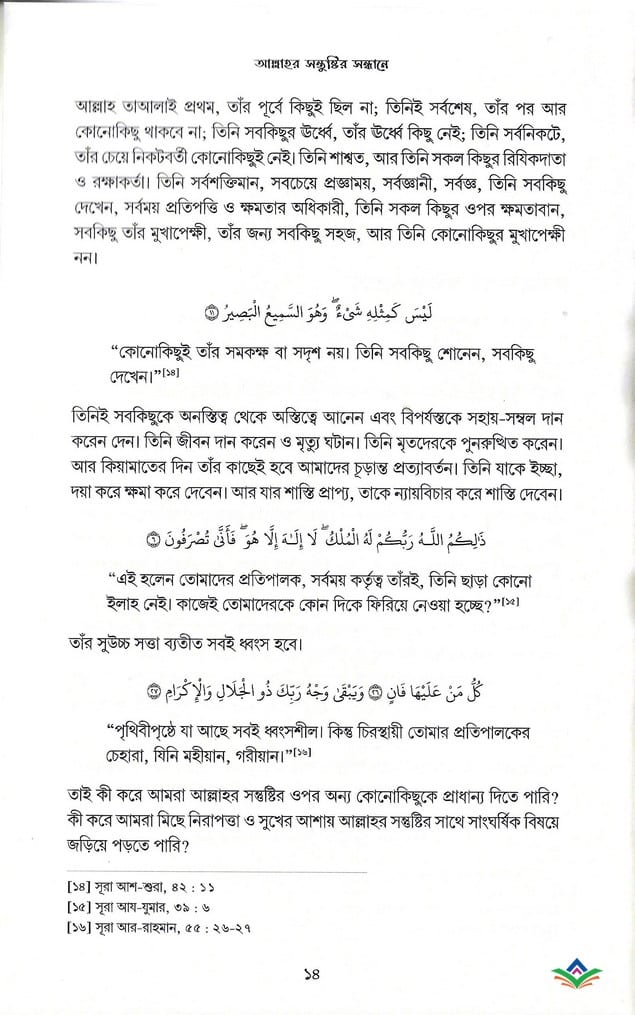 আল্লাহর সন্তুষ্টির সন্ধানে
আল্লাহ তাআলাই প্রথম, তাঁর পূর্বে কিছুই ছিল না; তিনিই সর্বশেষ, তাঁর পর আর
কোনোকিছু থাকবে না; তিনি সবকিছুর ঊর্ধ্বে, তাঁর ঊর্ধ্বে কিছু নেই; তিনি সর্বনিকটে,
তাঁর চেয়ে নিকটবর্তী কোনোকিছুই নেই। তিনি শাশ্বত, আর তিনি সকল কিছুর রিযিকদাতা
ও রক্ষাকর্তা। তিনি সর্বশক্তিমান, সবচেয়ে প্রজ্ঞাময়, সর্বজ্ঞানী, সর্বজ্ঞ, তিনি সবকিছু
দেখেন, সর্বময় প্রতিপত্তি ও ক্ষমতার অধিকারী, তিনি সকল কিছুর ওপর ক্ষমতাবান,
সবকিছু তাঁর মুখাপেক্ষী, তাঁর জন্য সবকিছু সহজ, আর তিনি কোনোকিছুর মুখাপেক্ষী
নন।
لَيْسَ كَمِثْلِهِ شَيْءٌ ۖ وَهُوَ السَّمِيعُ الْبَصِيرُ ﴿١١﴾
“কোনোকিছুই তাঁর সমকক্ষ বা সদৃশ নয়। তিনি সবকিছু শোনেন, সবকিছু
দেখেন।”[১৪]
তিনিই সবকিছুকে অনস্তিত্ব থেকে অস্তিত্বে আনেন এবং বিপর্যস্তকে সহায়-সম্বল দান
করেন দেন। তিনি জীবন দান করেন ও মৃত্যু ঘটান। তিনি মৃতদেরকে পুনরুত্থিত করেন।
আর কিয়ামাতের দিন তাঁর কাছেই হবে আমাদের চূড়ান্ত প্রত্যাবর্তন। তিনি যাকে ইচ্ছা,
দয়া করে ক্ষমা করে দেবেন। আর যার শাস্তি প্রাপ্য, তাকে ন্যায়বিচার করে শাস্তি দেবেন।
ذَٰلِكُمُ اللَّهُ رَبُّكُمْ لَهُ الْمُلْكُ ۖ لَا إِلَـٰهَ إِلَّا هُوَ ۖ فَأَنَّىٰ تُصْرَفُونَ ﴿٦﴾
“এই হলেন তোমাদের প্রতিপালক, সর্বময় কর্তৃত্ব তাঁরই, তিনি ছাড়া কোনো
ইলাহ নেই। কাজেই তোমাদেরকে কোন দিকে ফিরিয়ে নেওয়া হচ্ছে?”[১৫]
তাঁর সুউচ্চ সত্তা ব্যতীত সবই ধ্বংস হবে।
كُلُّ مَنْ عَلَيْهَا فَانٍ ﴿٢٦﴾ وَيَبْقَىٰ وَجْهُ رَبِّكَ ذُو الْجَلَالِ وَالْإِكْرَامِ ﴿٢٧﴾
“পৃথিবীপৃষ্ঠে যা আছে সবই ধ্বংসশীল। কিন্তু চিরস্থায়ী তোমার প্রতিপালকের
চেহারা, যিনি মহীয়ান, গরীয়ান।”[১৬]
তাই কী করে আমরা আল্লাহর সন্তুষ্টির ওপর অন্য কোনোকিছুকে প্রাধান্য দিতে পারি?
কী করে আমরা মিছে নিরাপত্তা ও সুখের আশায় আল্লাহর সন্তুষ্টির সাথে সাংঘর্ষিক বিষয়ে
জড়িয়ে পড়তে পারি?
[১৪] সূরা আশ-শুরা, ৪২ : ১১
[১৫] সূরা আয-যুমার, ৩৯ : ৬
[১৬] সূরা আর-রাহমান, ৫৫ : ২৬-২৭
১৪